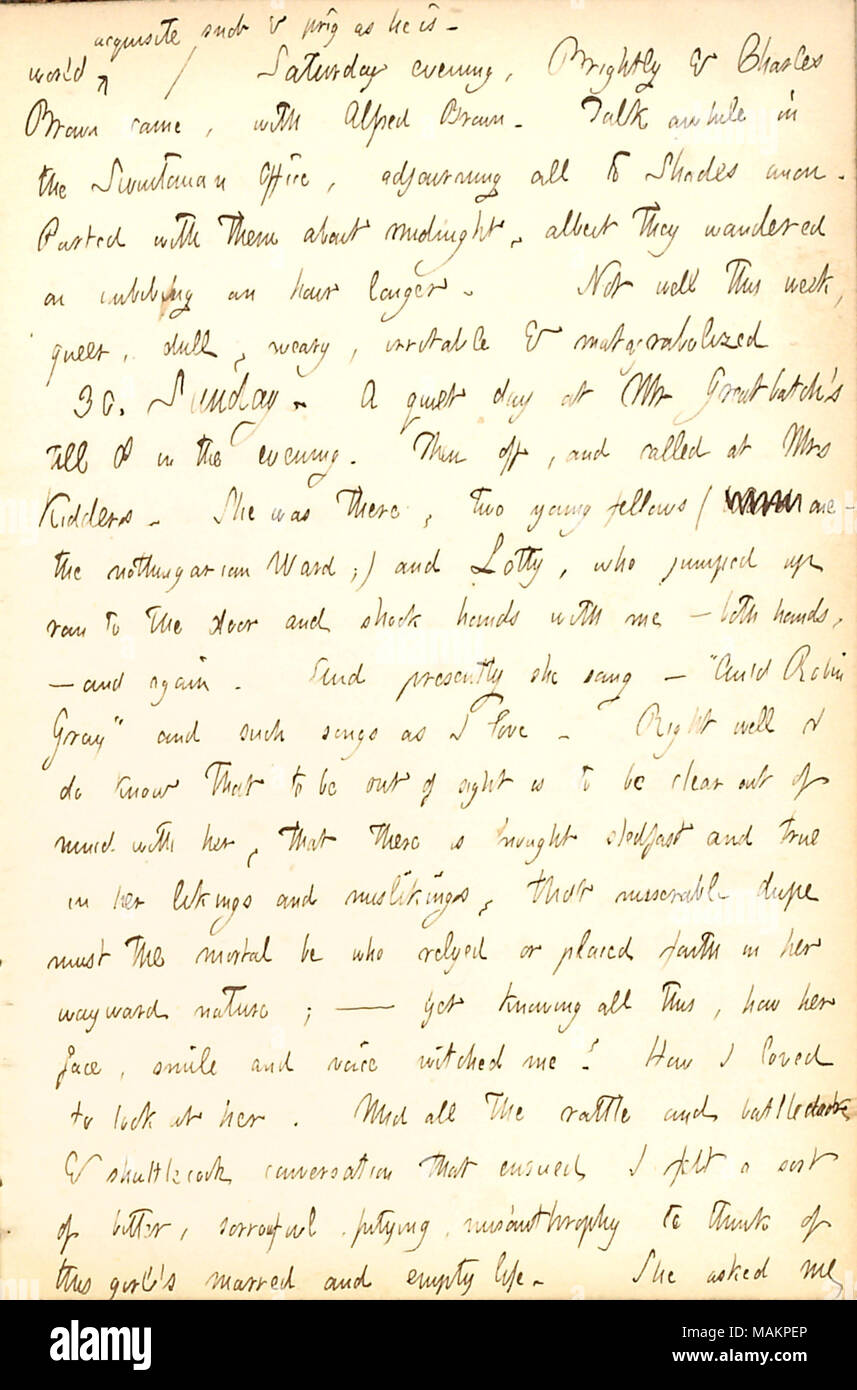 acquisite snob & prig as he is -
world / Saturday evening, Brightly & Charles
Brown came, with Alfred Brown. Talk awhile in
the Scientanan Office, adjourning all to Shades anon.
Parted with them about midnight, albeit they wandered
on imbibing an hour longer. Not well this week,
queer, dull, weary, irritable & matagrabolized
30. Sunday. A quiet day at Mr Greatbatch's
till 8 in the evening. Then off, and called at Mrs
Kidders. She was there, two young fellows ( one -
the nothingarian Ward;) and Lotty, who jumped up
ran to the door and shook hands with me - both hands,
- and again. And presently she sang - "Auld Robin
Gray" and such songs as I love - Right well I
do know that to be out of sight is to be clear out of
mind with her, that there is nought stedfast and true
in her likings and mislikings, that miserable dupe
must the mortal be who relyed or placed faith in her
wayward nature; — yet knowing all this, how her
face, smile and voice witched me! How I loved
to look at her. Mid all the rattle and battledore
& shuttlecock conversation that ensued I felt a sort
of bitter, sorrowful, pitying, misanthrophy to think of
this girl's marred and empty life. She asked me,
alamy
Image ID: MAKPEP
www.alamy.com